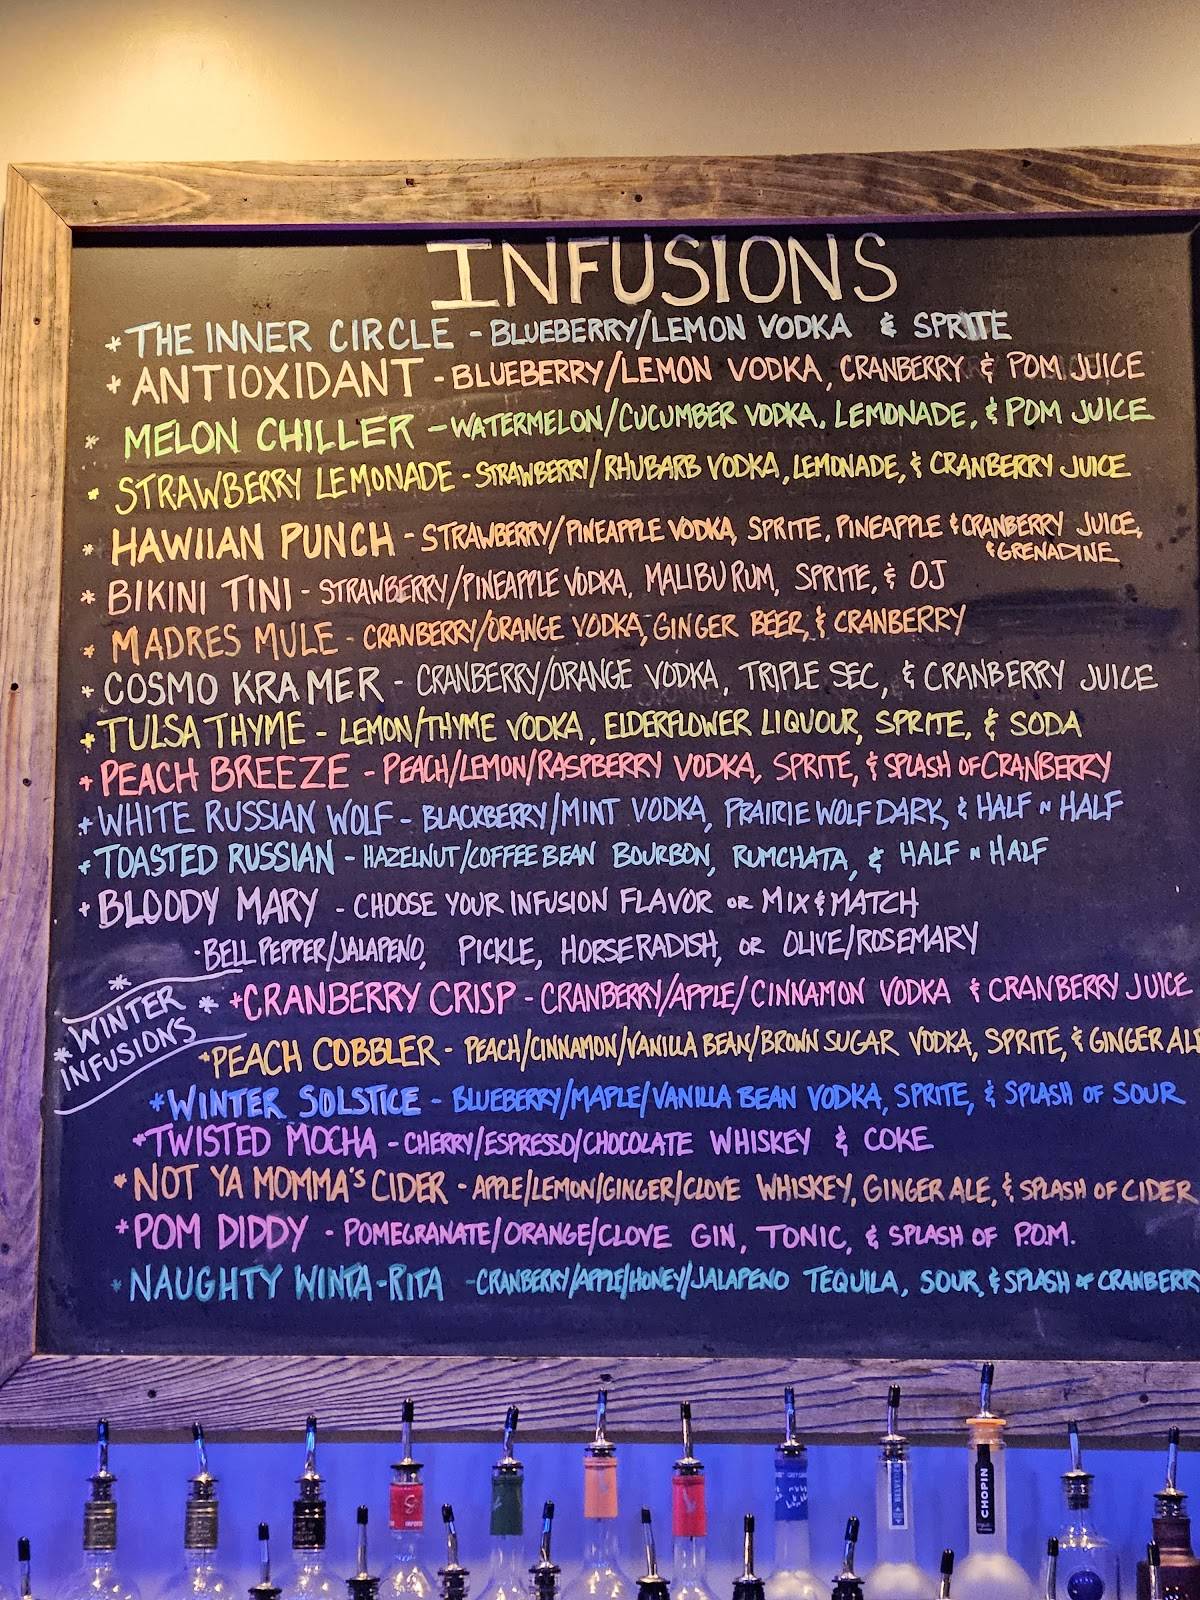 INFUSIONS
* THE INNER CIRCLE - BLUEBERRY/LEMON VODKA & SPRITE
* ANTIOXIDANT - BLUEBERRY/LEMON VODKA, CRANBERRY & POM JUICE
* MELON CHILLER - WATERMELON/CUCUMBER VODKA, LEMONADE, & POM JUICE
* STRAWBERRY LEMONADE - STRAWBERRY/RHUBARB VODKA, LEMONADE, & CRANBERRY JUICE
* HAWIIAN PUNCH - STRAWBERRY/PINEAPPLE VODKA, SPRITE, PINEAPPLE & CRANBERRY JUICE,
& GRENADINE
* BIKINI TINI - STRAWBERRY/PINEAPPLE VODKA, MALIBU RUM, SPRITE, & OJ
* MADRES MULE - CRANBERRY/ORANGE VODKA, GINGER BEER, & CRANBERRY
* COSMO KRAMER - CRANBERRY/ORANGE VODKA, TRIPLE SEC, & CRANBERRY JUICE
* TULSA THYME - LEMON/THYME VODKA, ELDERFLOWER LIQUOUR, SPRITE, & SODA
* PEACH BREEZE - PEACH/LEMON/RASPBERRY VODKA, SPRITE, & SPLASH OF CRANBERRY
* WHITE RUSSIAN WOLF - BLACKBERRY/MINT VODKA, PRAIRIE WOLF DARK, & HALF N HALF
* TOASTED RUSSIAN - HAZELNUT/COFFEE BEAN BOURBON, RUMCHATA, & HALF N HALF
* BLOODY MARY - CHOOSE YOUR INFUSION FLAVOR OR MIX & MATCH
- BELL PEPPER/JALAPENO, PICKLE, HORSERADISH, OR OLIVE/ROSEMARY
* WINTER
INFUSIONS *
* CRANBERRY CRISP - CRANBERRY/APPLE/CINNAMON VODKA & CRANBERRY JUICE
* PEACH COBBLER - PEACH/CINNAMON/VANILLA BEAN/BROWN SUGAR VODKA, SPRITE, & GINGER AL
* WINTER SOLSTICE - BLUEBERRY/MAPLE/VANILLA BEAN VODKA, SPRITE, & SPLASH OF SOUR
* TWISTED MOCHA - CHERRY/ESPRESSO/CHOCOLATE WHISKEY & COKE
* NOT YA MOMMA'S CIDER - APPLE/LEMON/GINGER/CLOVE WHISKEY, GINGER ALE, & SPLASH OF CIDER
* POM DIDDY - POMEGRANATE/ORANGE/CLOVE GIN, TONIC, & SPLASH OF P.O.M.
* NAUGHTY WINTA-RITA - CRANBERRY/APPLE/HONEY/JALAPENO TEQUILA, SOUR, & SPLASH OF CRANBERRY
BELVEDERE
CHOPIN